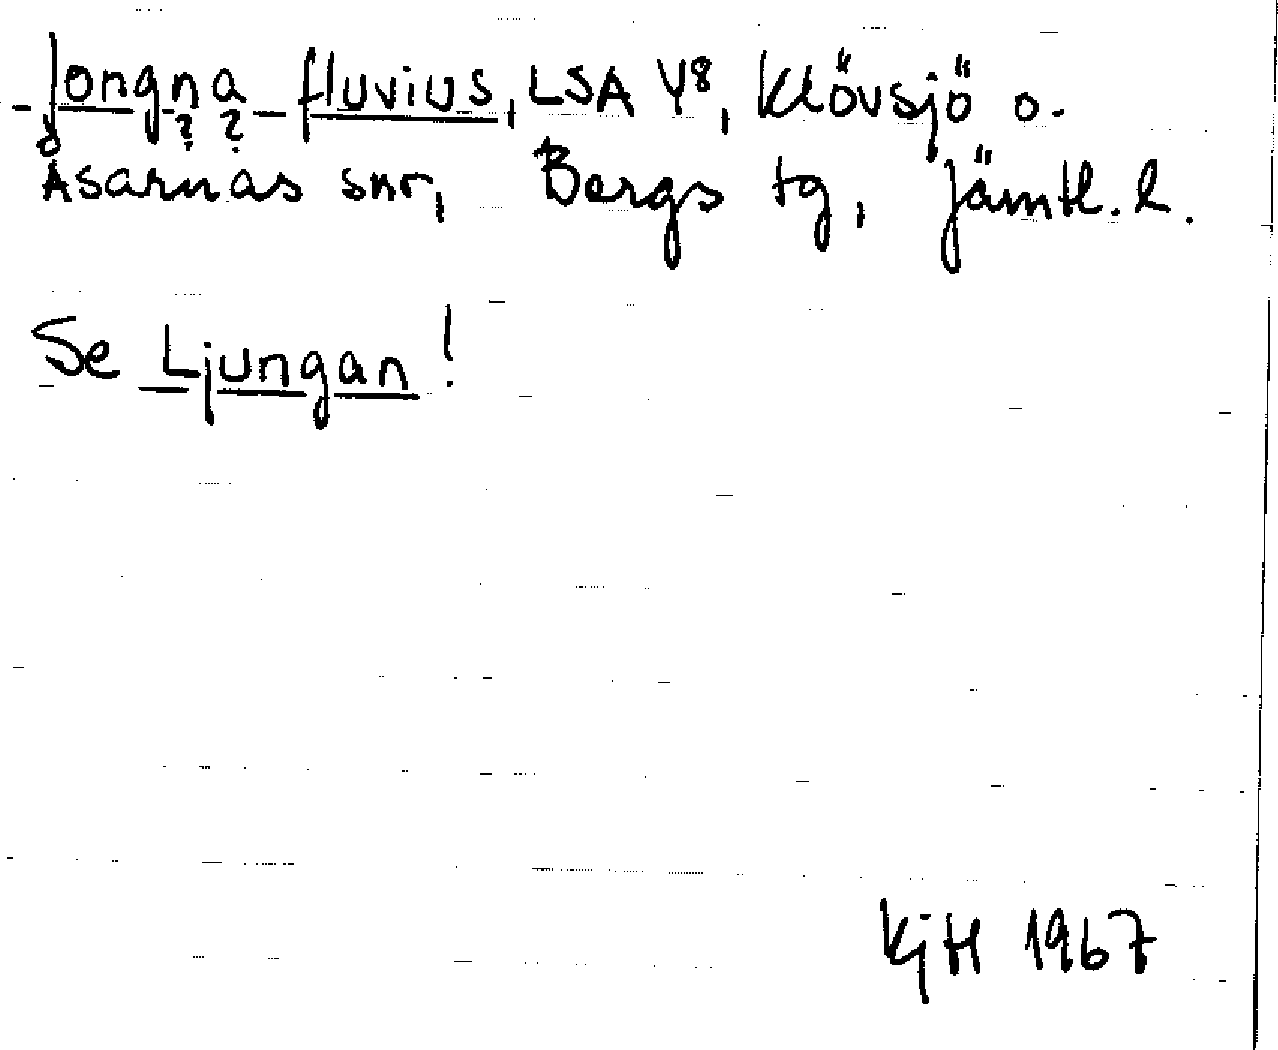 Jongna fluvius, LSA Y8, Klövsjö o.
? ?
Åsarnas snr, Bergs tg, Jämtl. l.
Se Ljungan!
KjH 1967